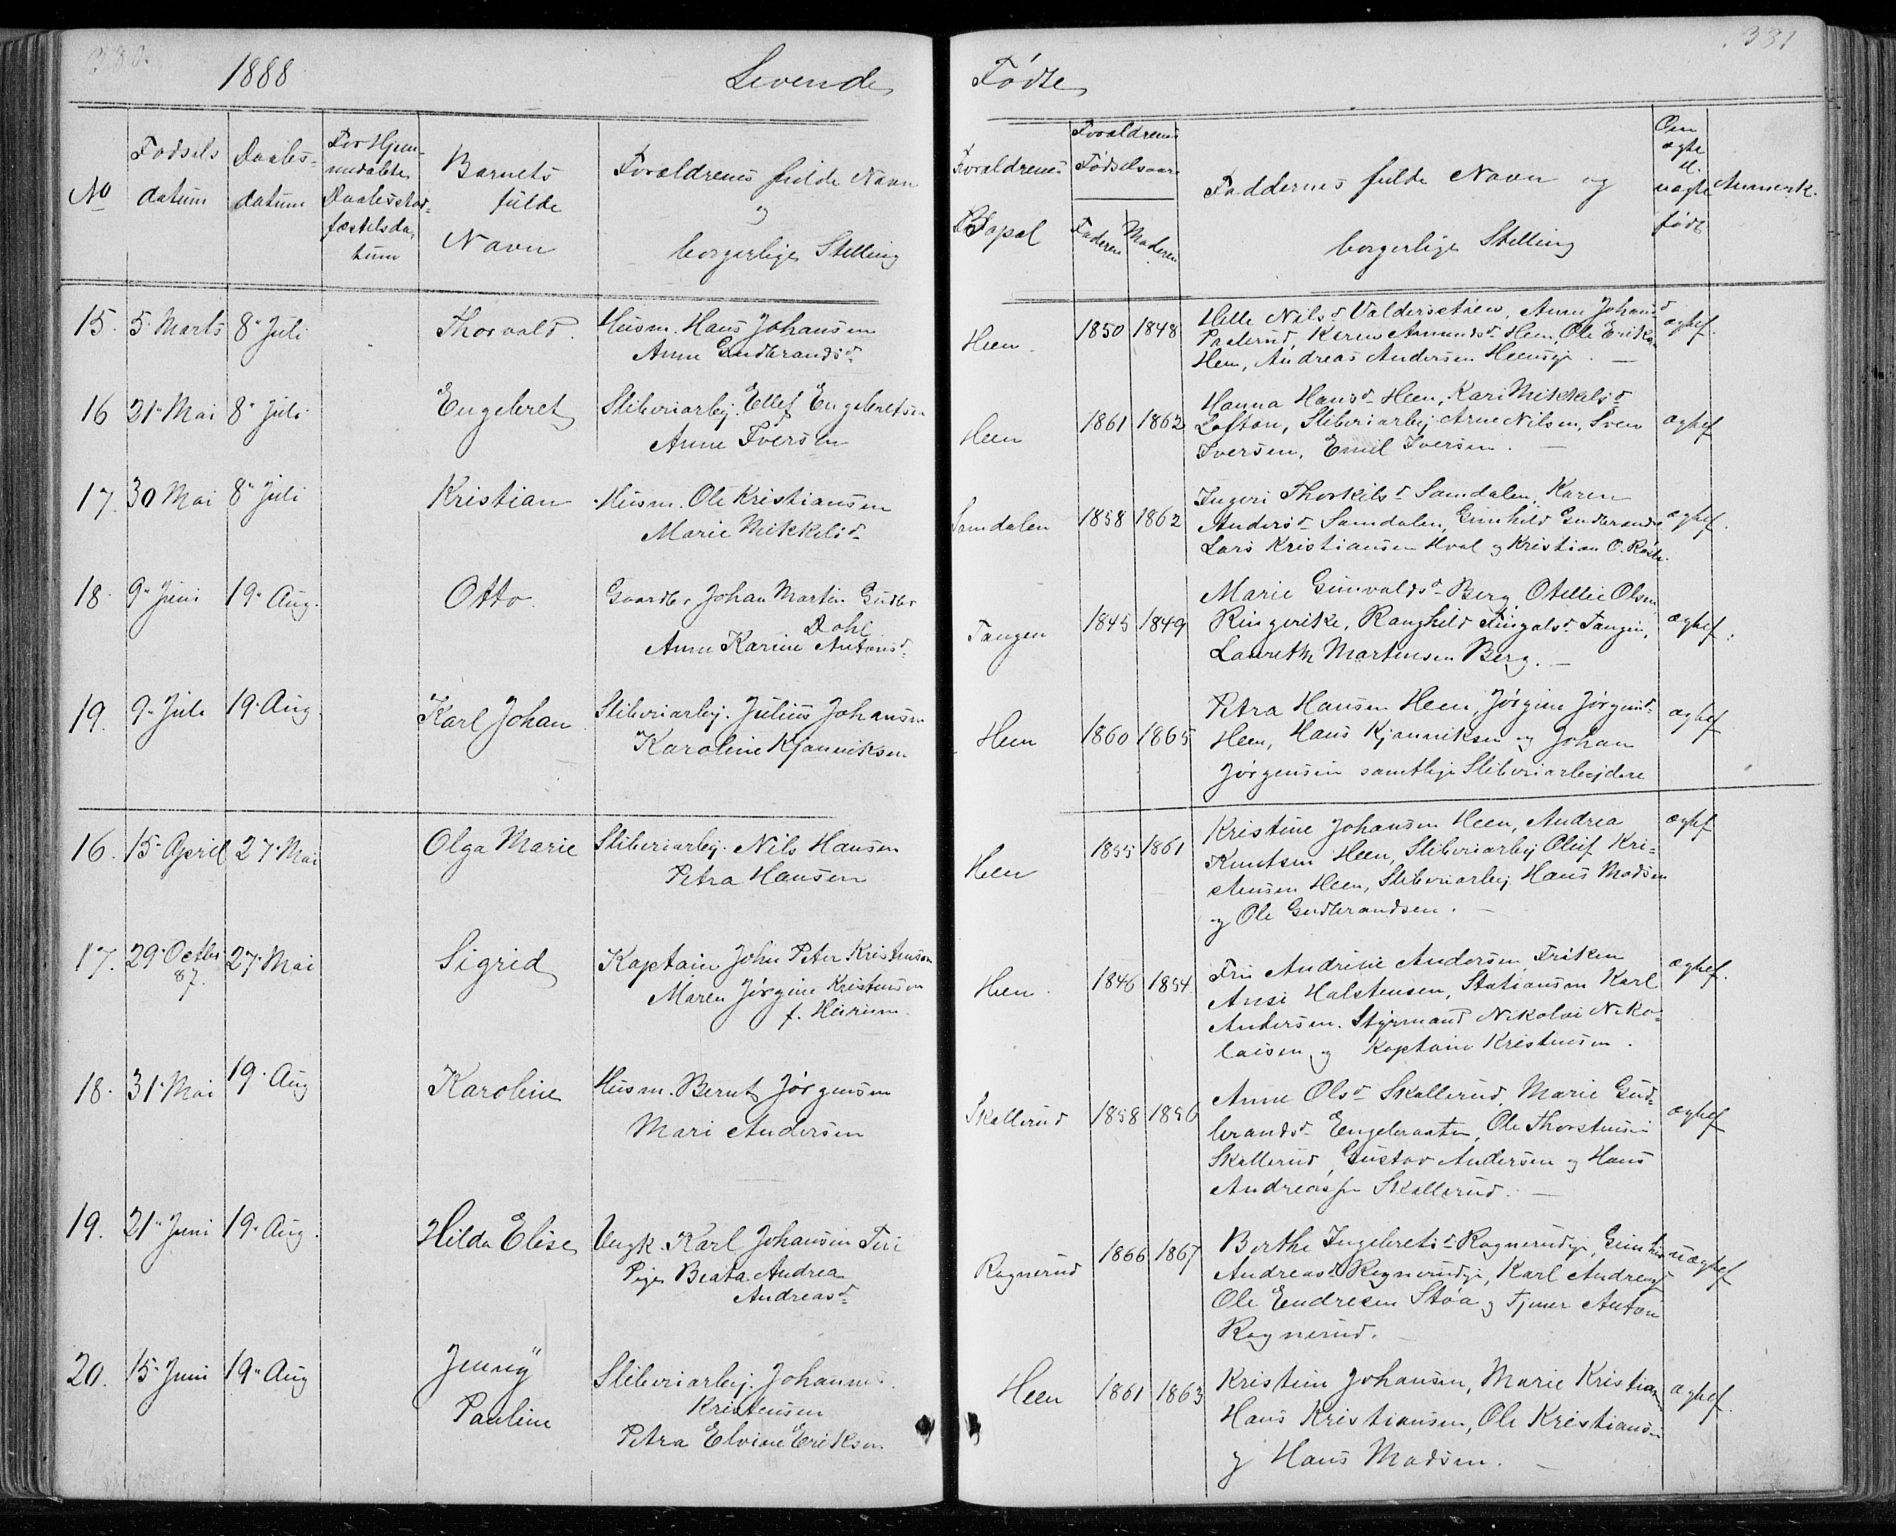 330.
1888
Levende
No
Fødsels
datum
Daabs-
datum
For Hjem-
medøbte
Daabsstad-
fæstelsda-
tum
Barnets
fulde
Navn
Forældrenes fulde Navn
og
borgerlige Stilling
15. 5. Marts 8. Juli Thorvald. Husm. Hans Johansen
Anne Gudbrandsd.
16 21. Mai 8. Juli Engebret Sliberiarbej. Ellef Engebretsen
Anne Iversen
17. 30 Mai 8. Juli Kristian Husm. Ole Kristiansen
Marie Mikkelsd.
18. 9. Juni 19. Aug. Otto. Gaardbr. Johan Martin Gudbr.
Dahl
Anne Karine Antonsd.
19. 9. Juli 19. Aug. Karl Johan Sliberiarbej. Julius Johansen
Karoline Kjanniksen
16. 15. April 27. Mai Olga Marie Sliberiarbej. Nils Hansen
Petra Hansen
17. 29. Octbr 27. Mai Sigrid Kaptain John Peter Kristensen
87.
Maren Jørgine Kristensen
f. Heirum.
18. 31. Mai 19. Aug Karoline Husm. Bernt Jørgensen
Mari Andersen
19. 21. Juni 19. Aug. Hilda Elise Ungk. Karl Johansen
Pige Beata Andrea
Andreasd.
20. 15. Juni 19. Aug Jenny Sliberiarbej. Johannes
Pauline Kristensen
Petra Elvine Eriksen
331
Fødte
Forældrenes
Bopæl
Forældrenes
Fødselsaar
Faderen Moderen
Faddernes fulde Navn og
borgerlige Stilling
Om
ægte
el.
uægte
født
Anmerk.
Heen. 1850 1848 Helle Nilsd. Valdersstøen, Anne Johansd. ægtef.
Paalerud, Karen Amundsd. Heen, Ole Eriksen
Heen, Andreas Andersen Heenseje.
Heen 1861 1862 Hanna Hansd. Heen, Kari Mikkelsd. ægtef
Loftøn, Sliberiarbej Arne Nilsen, Sven
Iversen, Emil Iversen.
Samdalen 1858 1862 Ingeri Thorkilsd. Samdalen, Karen ægtef.
Andersd. Samdalen, Gunhild Gudbrandsd.
Lars Kristiansen Hval og Kristian O.
Tangen 1845 1849 Marie Gunvaldsd. Berg, Otellie Olsen ægtef.
Ringerike, Ranghild Tangen,
Laurits Martensen Berg.
Heen 1860 1865 Petra Hansen Heen, Jørgine Jørgensd. ægtef
Heen, Hans Kjanniksen og Johan
Jørgensen samtlige Sliberiarbejdere
Heen 1855 1861 Kristine Johansen Heen, Andrea ægtef
Knutsen Heen, Sliberiarbej Oluf Kri-
stensen Heen, Sliberiarbej Hans Madsen
og Ole Gudbrandsen.
Heen. 1846 1854 Fru Andrine Andersen, Frøken ægtef.
Ansi Halstensen, Stationsm Karl
Andersen. Styrmand Nikolai Niko-
laisen og Kaptain Kristensen.
Skallerud 1858 1856 Anne Olsd. Skallerud, Marie Gud- ægtef
brandsd. Engebraaten, Ole Thorstensen
Skallerud, Gustav Andersen og Hans
Andreassen Skallerud.
Rognerud 1866 1867 Berthe Ingebretsd. Rognerudeje, Gunhild uægtef
Andreasd. Rognerudeje, Karl Andreas
Ole Endresen Støa og Tjener Anton
Rognerud.
Heen 1861 1863 Kristine Johansen, Marie Kristian ægtef.
Hans Kristiansen, Ole Kristiansen
og Hans Madsen.